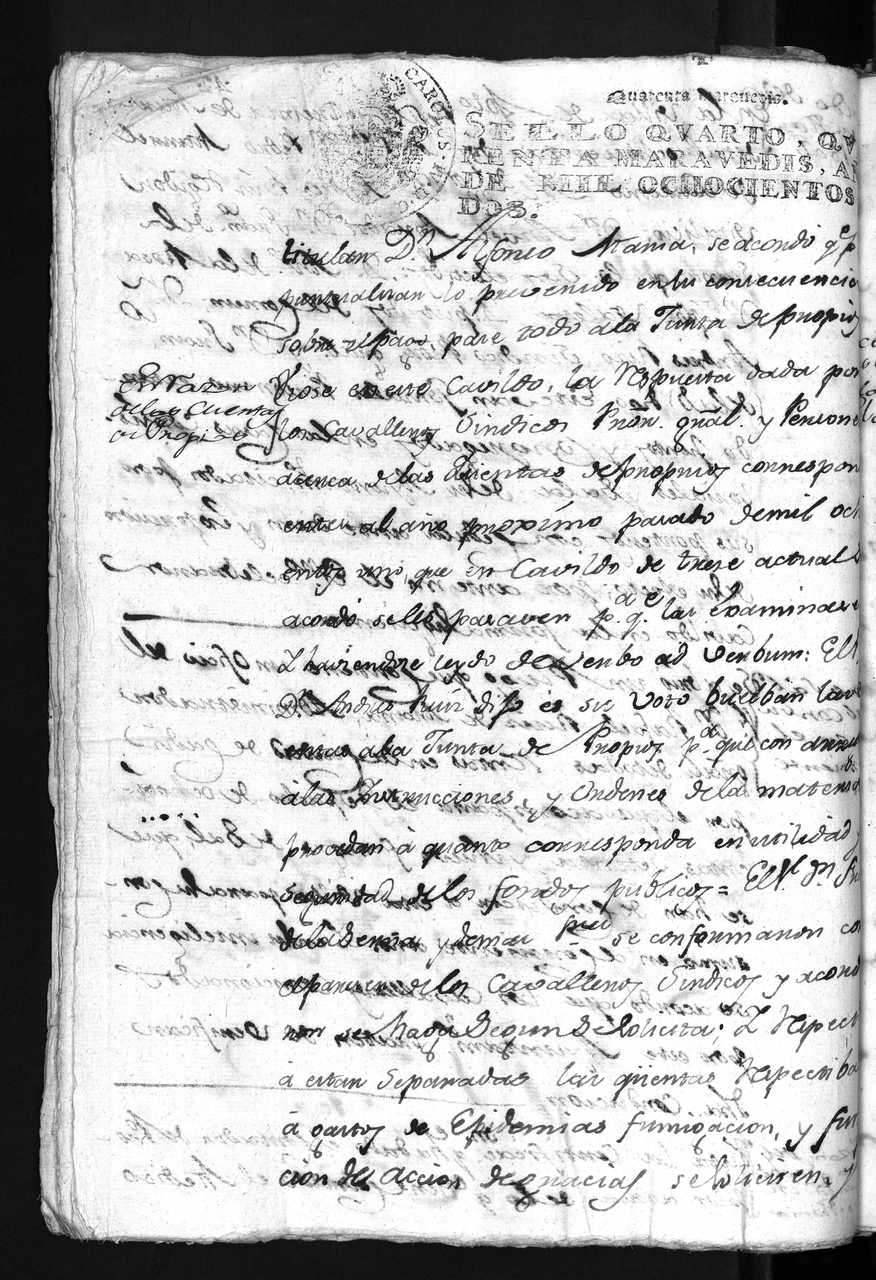 CAROLUS
Quarenta maravedis.
SELLO QVARTO, QVA
RENTA MARAVEDIS, A
DE MIL OCHOCIENTOS
DOS.
titular Dn. Alfonso Maria, se acordó qe. p
puntualizan lo prevenido en su consecuencia
sobre reparo, pase todo a la Junta de propios
En razon
de las Cuentas
de Propios
Viose en este Cavildo, la Respuesta dada por
los Cavalleros Sindicos Pror. gral. y Persone
acerca de las Quentas de propios correspon
entes al año proximo pasado de mil och
entos uno, que en Cavildo de trese actual
acordó se les pasasen pa. qe. las examinase
Y haviendose leydo de verbo ad verbum: El
Dn. Andres Ruiz dijo es su voto buelban las
entas a la Junta de Propios pa. que con
a las Instrucciones, y Ordenes de la materia
procedan á quanto corresponda en utilidad y
seguridad de los fondos publicos = El Sr. Dn.
de la Serna y demas se conformaron co
el parecer de los Cavalleros Sindicos y acord
ron se haga segun se solicita; Y respect
á estar separadas las qüentas respectiba
á gastos de Epidemias fumigacion, y fun
cion de accion de gracias se soliciten, y